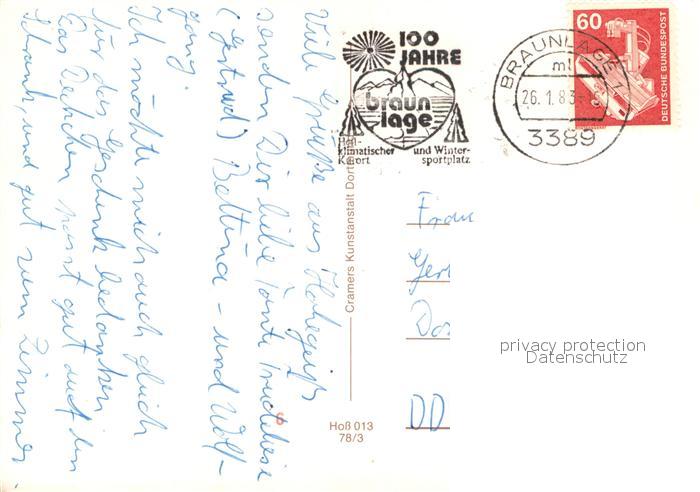 Viele Grüße aus Hohegeiß
senden Dir liebe Tante Trudeliese
(Gertrud) Bettina - und Wolf-
gang.
Ich möchte mich auch gleich
für das Geschenk bedanken
Das Deckchen passt gut auf den
Schrank und gut zum Zimmer.
100
JAHRE
braun
lage
Heil-
klimatischer
Kurort
und Winter-
sportplatz
BRAUNLAGE 1
ml
26.1.83
3389
60
DEUTSCHE BUNDESPOST
Cramers Kunstanstalt Dort
Hoß 013
78/3
8
Frau
Ger
Do
DD
privacy protection
Datenschutz